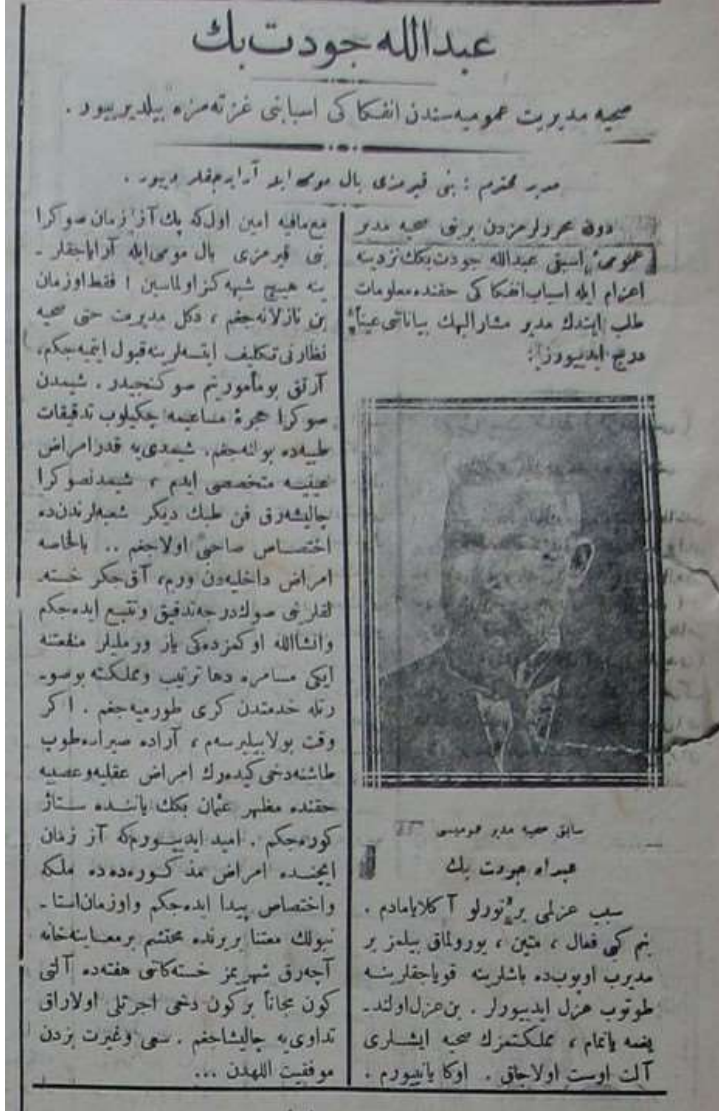 عبدالله جودت بك
صحیه مدیریت عمومیه‌سندن انفكاكی اسبابنی غزته‌مزه بیلدیرییور .
مدیر محترم : بنی قیرمزی بال مومی ایله آرایه‌جقلر دییور .
دون محررلرمزدن برینی صحیه مدیر
عمومئ اسبقی عبدالله جودت بكك نزدینه
اعزام ایله اسباب انفكاكی حقنده معلومات
طلب ایتدك مدیر مشارالیهك بیاناتنی عیناً
درج ایدییورز :
سابق صحیه مدیر عمومیسی
عبدالله جودت بك
سبب عزلمی بر تورلو آكلایامادم .
بنم كبی فعال ، متین ، یورولمق بیلمز بر
مدیری اویوب‌ده باشلرینه قویاجقلرینه
طوتوب عزل ایدییورلر . بن عزل اولند-
یغمه یانمام ، مملكتمزك صحیه ایشلری
آلت اوست اولاجق . اوكا یانییورم .
مع‌مافیه امین اول‌كه پك آز زمان صوكرا
بنی قیرمزی بال مومی ایله آرایاجقلر -
ینه هیچ شبهه‌كز اولماسین ! فقط اوزمان
بن نازلانه‌جغم ، دكل مدیریت حتی صحیه
نظارتی تكلیف ایتسه‌لر ینه قبول ایتمیه‌جكم .
آرتق بو مأموریتم صوكنجیدر . شیمدن
صوكرا حجرۀ مساعیمه چكیلوب تدقیقات
طبیه‌ده بولنه‌جغم . شیمدی‌یه قدر امراض
عینیه متخصصی ایدم ، شیمدنصوكرا
چالیشه‌رق فن طبك دیكر شعبه‌لرندن‌ده
اختصاص صاحبی اولاجغم .. بالخاصه
امراض داخلیه‌دن ورم ، آق جكر خسته-
لقلرنی صوك درجه تدقیق و تتبع ایده‌جكم
وانشاالله اوكمزده‌كی یاز ورملیلر منفعتنه
ایكی مسامره دها ترتیب ومملكته بو صو-
رتله خدمتدن كری طورمیه‌جغم . اكر
وقت بولابیلیرسه‌م ، آراده صیراده طوپ
طاشنه دخی كیده‌رك امراض عقلیه و عصبیه
حقنده مظهر عثمان بكك یاننده ستاژ
كوره‌جكم . امید ایدییورم‌كه آز زمان
ایچنده امراض مذكوره‌ده‌ده ملكه
واختصاص پیدا ایده‌جكم و اوزمان استا-
نبولك معتنا بر یرنده محتشم بر معاینه‌خانه
آچه‌رق شهریمز خستكاننی هفته‌ده آلتی
كون مجاناً بر كون دخی اجرتلی اولاراق
تداوی‌یه چالیشاجغم . سعی و غیرت بزدن
موفقیت اللهدن ...